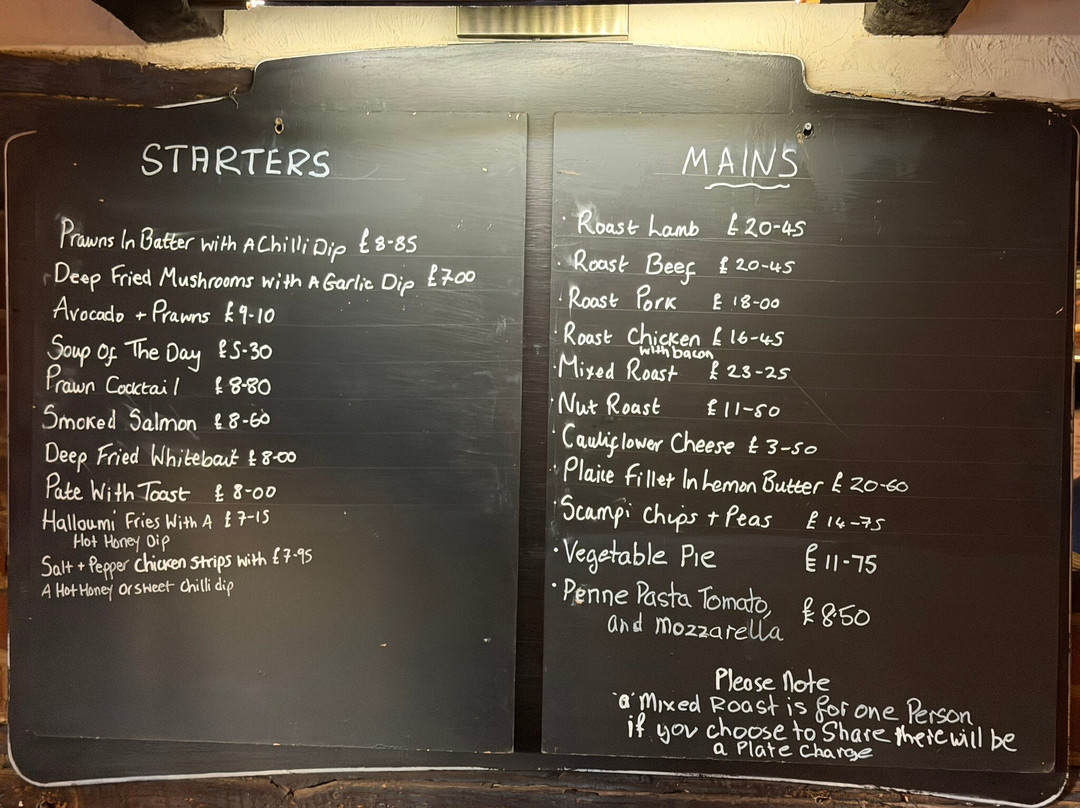 STARTERS
Prawns In Batter with A Chilli Dip £8-85
Deep Fried Mushrooms with A Garlic Dip £7.00
Avocado + Prawns £9-10
Soup Of The Day £5-30
Prawn Cocktail £8-80
Smoked Salmon £8-60
Deep Fried Whitebait £8-00
Pate With Toast £8-00
Halloumi Fries With A £7-15
Hot Honey Dip
Salt + Pepper Chicken strips with £7-95
A Hot Honey Or sweet Chilli dip
MAINS
· Roast Lamb £20-45
· Roast Beef £20-45
· Roast Pork £18-00
· Roast Chicken £16-45
with bacon
· Mixed Roast £23-25
· Nut Roast £11-50
· Cauliflower Cheese £3-50
· Plaice Fillet In Lemon Butter £20-60
· Scampi Chips + Peas £14-75
· Vegetable Pie £11-75
· Penne Pasta Tomato, £8.50
and Mozzarella
Please Note
'a' Mixed Roast is for one Person
if you choose to Share there will be
a Plate Charge